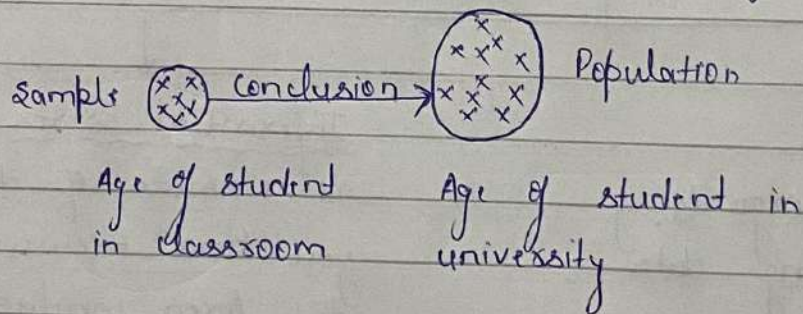 Sample Conclusion Population
Age of student
in classroom
Age of student in
university